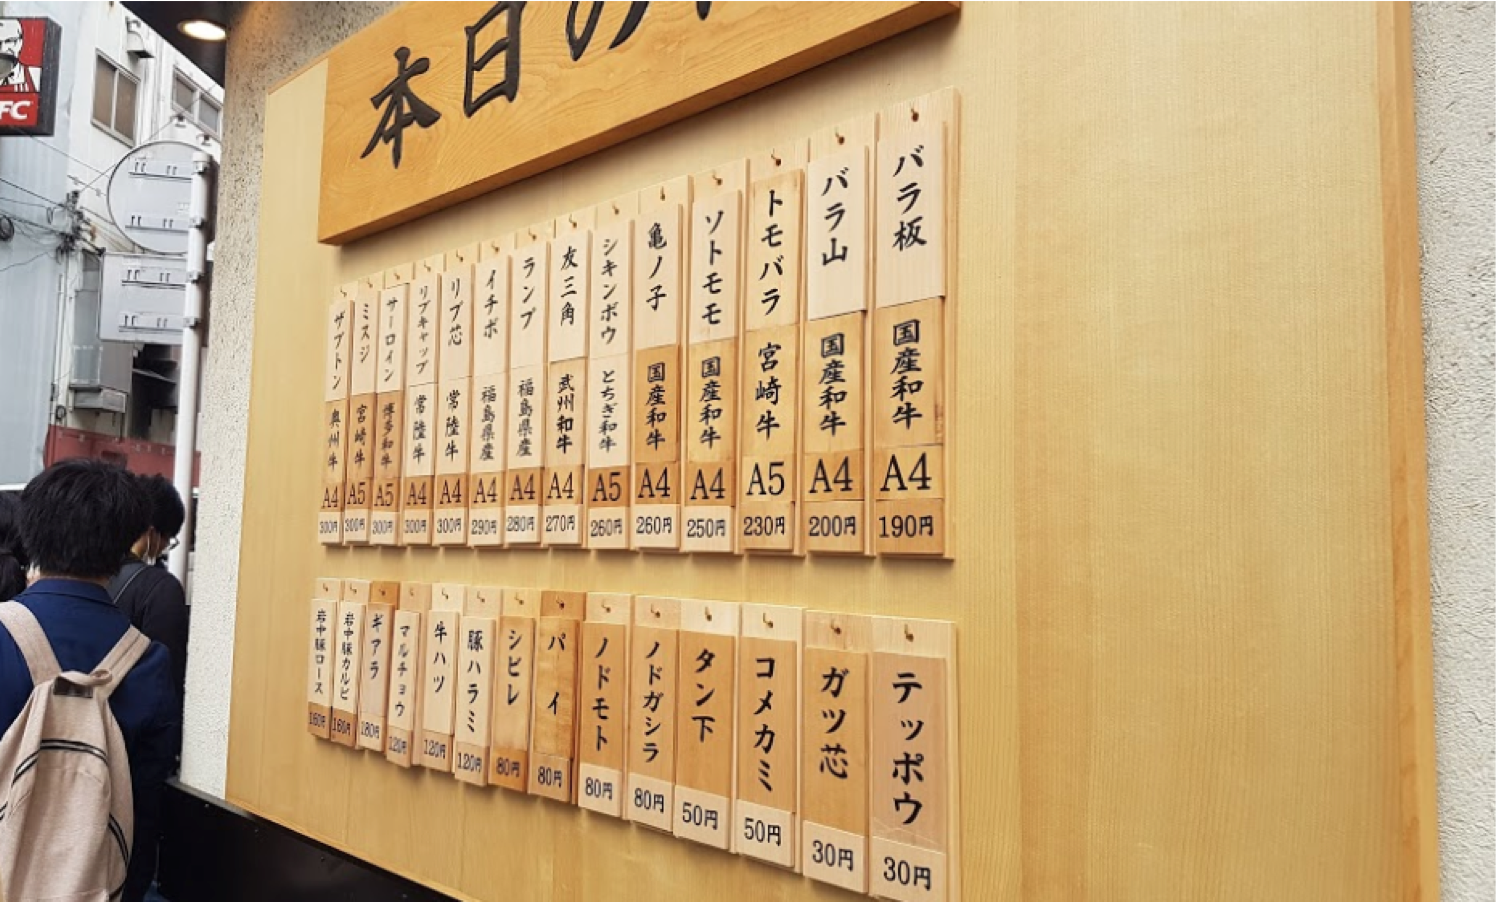 本日の
バラ板 国産和牛 A4 190円
バラ山 国産和牛 A4 200円
トモバラ 宮崎牛 A5 230円
ソトモモ 国産和牛 A4 250円
亀ノ子 国産和牛 A4 260円
シキンボウ とちぎ和牛 A5 260円
友三角 武州和牛 A4 270円
ランプ 福島県産 A4 280円
イチボ 福島県産 A4 290円
リブ芯 常陸牛 A4 300円
リブキャップ 常陸牛 A4 300円
サーロイン 博多和牛 A5 300円
ミスジ 宮崎牛 A5 300円
ザブトン 奥州牛 A4 300円
テッポウ 30円
ガツ芯 30円
コメカミ 50円
タン下 50円
ノドガシラ 80円
ノドモト 80円
パイ 80円
シビレ 80円
豚ハラミ 120円
牛ハツ 120円
マルチョウ 120円
ギアラ 180円
岩中豚カルビ 160円
岩中豚ロース 160円
FC